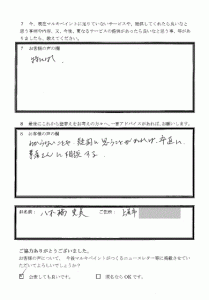 7 今、現在マルキペイントに足りていないサービスや、提供してくれたら良いなと
思う事等の内容、又、今後、更なるサービスの提供があったら良いなと思う事、等があ
りましたら、教えてください。
7 お客様の声の欄
特になし!
8 最後にこれから塗替えをお考えの方々へ、一言アドバイスがあれば、お願いします。
8 お客様の声の欄
わからないことや 疑問に思うことがあれば、正直に
業者さんに相談する。
お名前: 八木橋
ご住所: 上尾市
ご協力ありがとうございました。
お客様の声について、今後マルキペイントがつくるニュースレター等に掲載させてい
ただいてよろしいでしょうか?
☑ 公表しても良いです。 □ 匿名ならOKです。